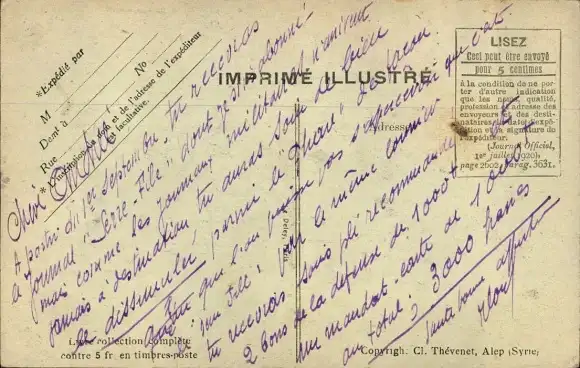 *Expédié par
M
Demt à
No
Rue
*L'inscription du nom et de l'adresse de l'expéditeur
est facultative.
IMPRIMÉ ILLUSTRÉ
Adresse
LISEZ
Ceci peut être envoyé
pour 5 centimes
à la condition de ne por-
ter d'autre indication
que les nom, qualité,
profession et adresse des
envoyeurs et des desti-
nataires, la date d'expé-
dition et la signature de
l'expéditeur.
(Journal Officiel,
1er juillet 1920)
page 2602 Parag. 3631.
A partir du 1er Septembre tu recevras
le Journal "Serre-File" dont je suis abonné
mais comme les journaux militaires n'arrivent
jamais à destination tu auras soin de bien
le dissimuler, parmi le
que l'on ne puisse pas s'apercevoir que c'est
par le même courrier
tu recevras sous pli recommandé
2 bons de la défense de 1000f
un mandat-carte de 1000f
au total : 3000 francs
toute bonne affection
Livre collection complète
contre 5 fr en timbres-poste
Copyrigh. Cl. Thévenet, Alep (Syrie)